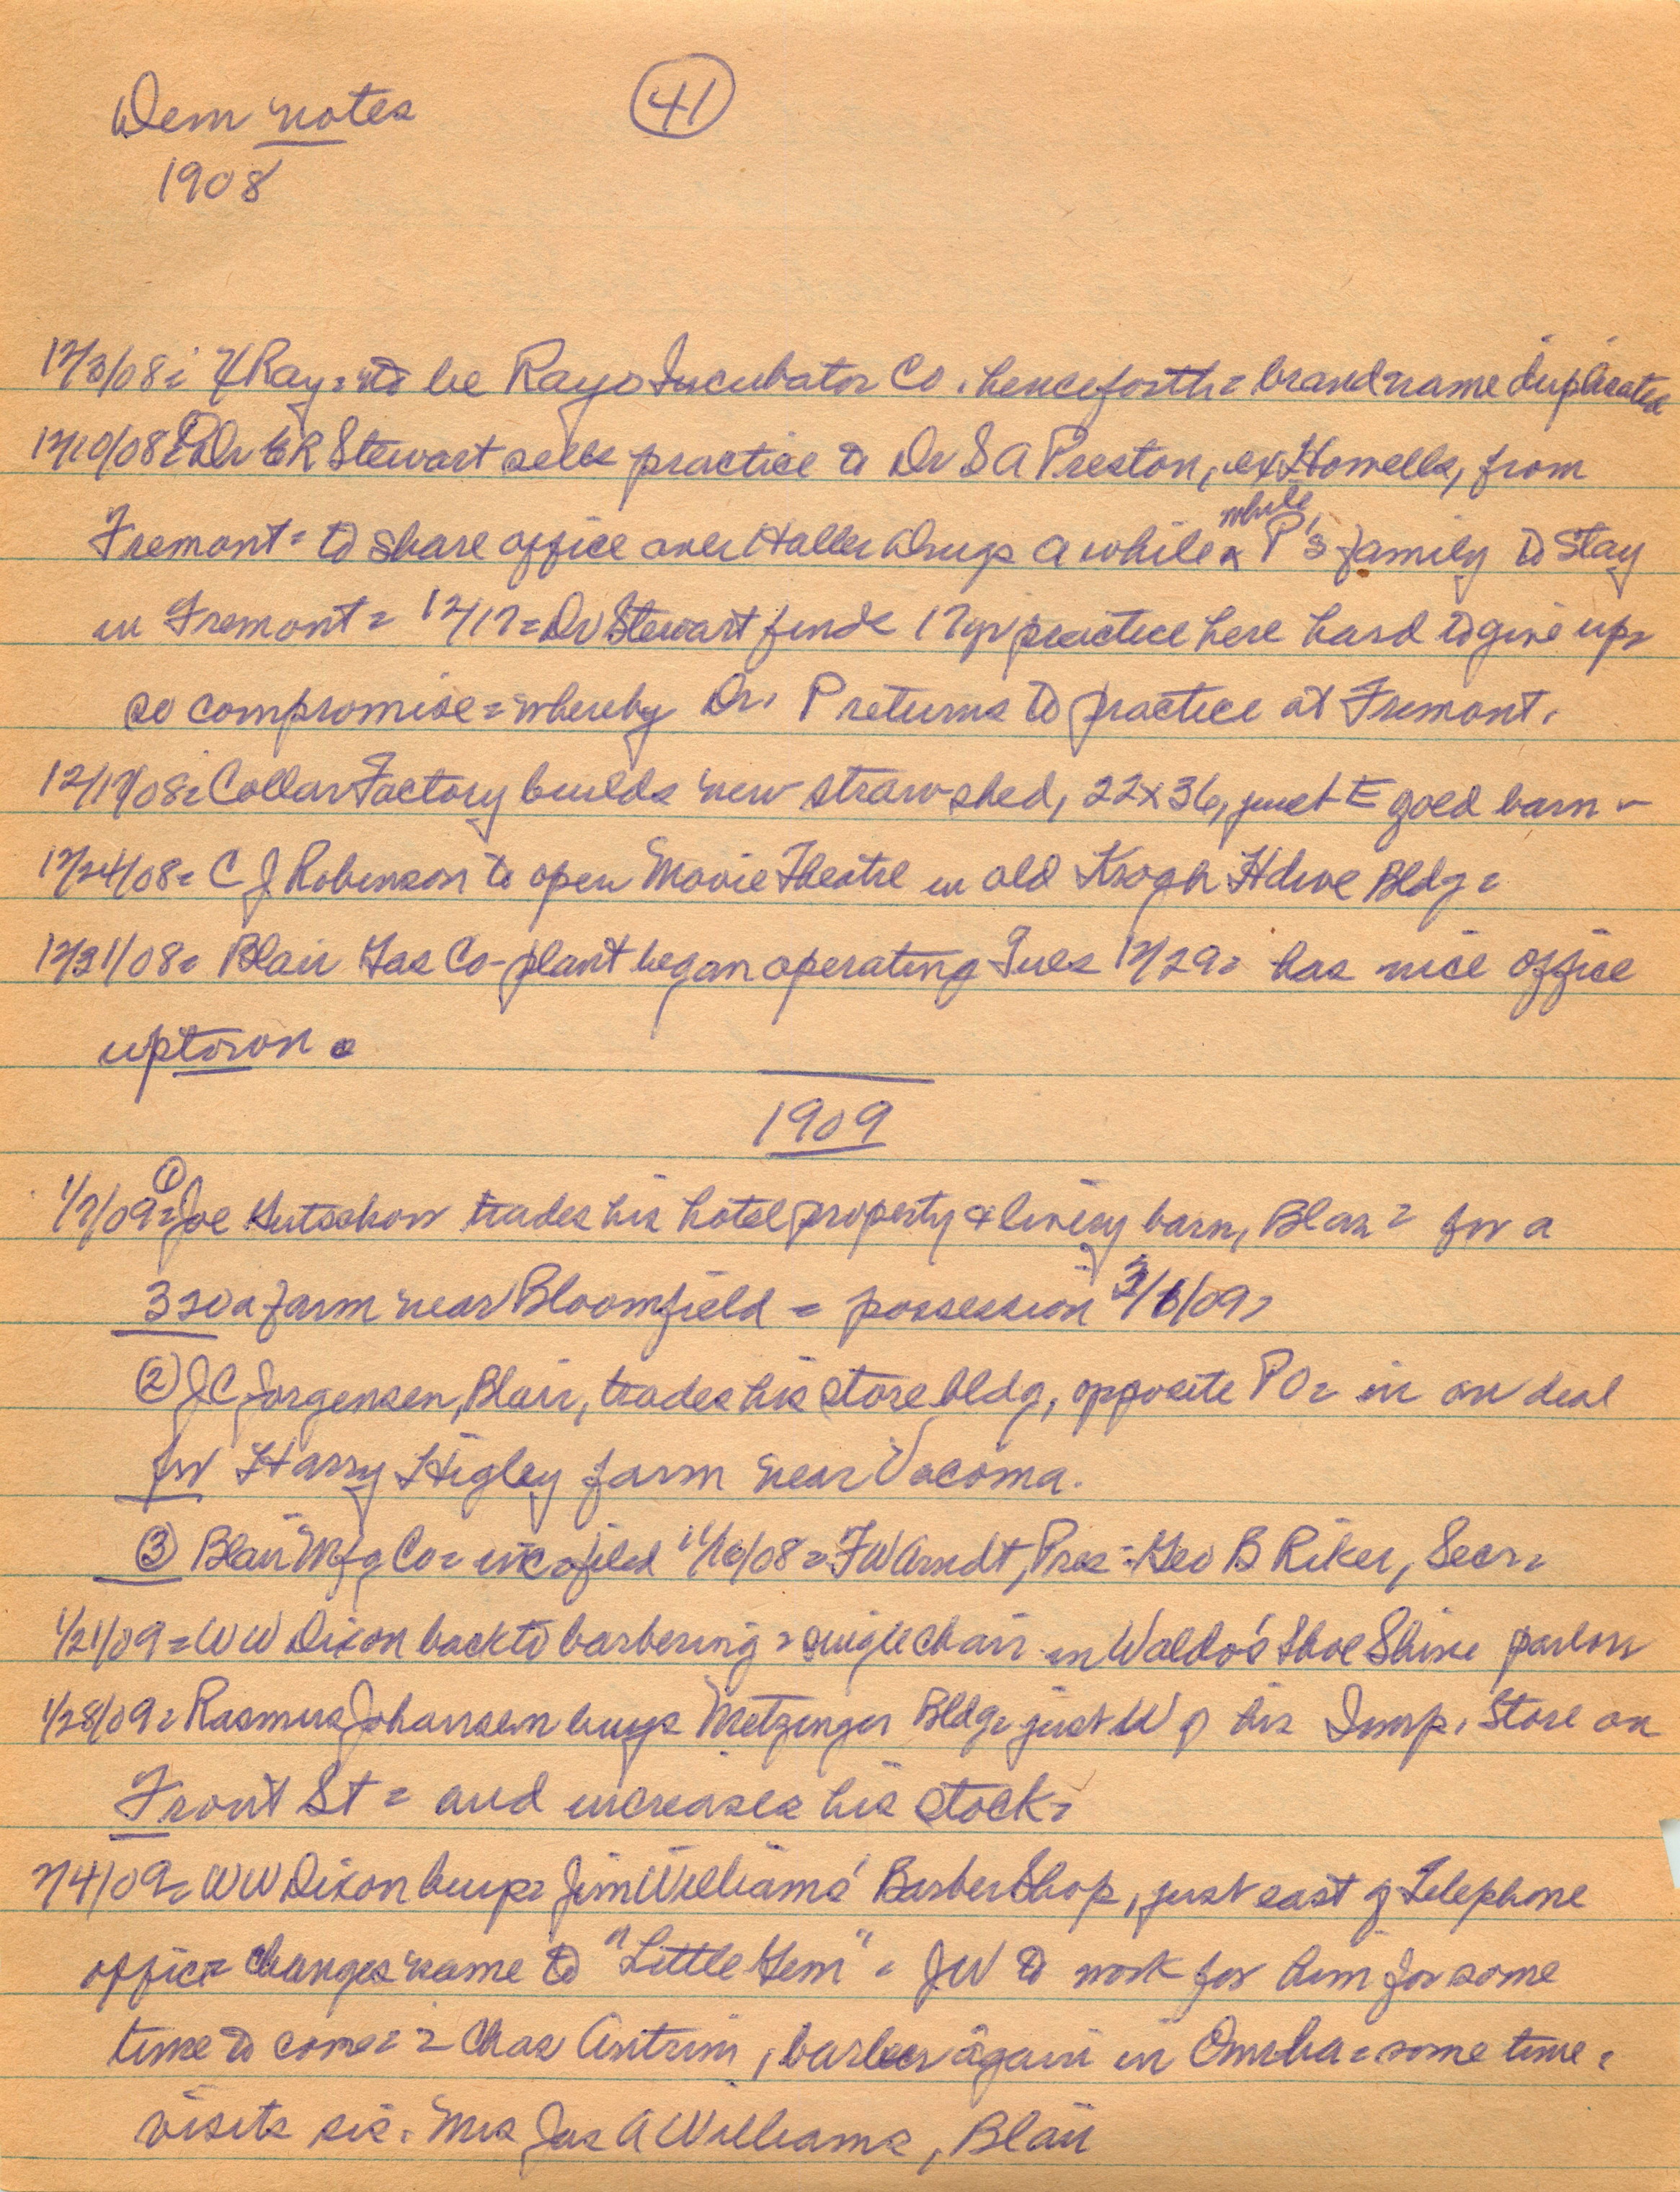 Dem notes
41
1908
12/3/08= X Ray= to be Rayo Incubator Co. henceforth= brand name duplicated
12/10/08= Dr ER Stewart sells practice to Dr S A Preston, ex Howells, from
while
Fremont= to share office over Haller Drugs a while P's family to stay
in Fremont= 12/17= Dr Stewart finds 17 yr practice here hard to give up=
so compromise= whereby Dr. P returns to practice at Fremont.
12/17/08= Collar Factory builds new straw shed, 22x36, just E barn
12/24/08= C J Robinson to open Movie Theatre in old Krogh Hdwe Bldg=
12/31/08= Blair Gas Co- plant began operating Tues 12/29= has nice office
uptown.
1909
1/7/09= ① Joe Gutschow trades his hotel property & livery barn, Blair= for a
320 a farm near Bloomfield = possession 3/1/09=
② J C Jorgensen, Blair, trades his store bldg, opposite PO= in deal
for Harry Higley farm near Vacoma.
③ Blair Mfg Co= inc filed F W Arndt, Pres= Geo B Riker, Secr=
1/21/09= W W Dixon back to barbering= single chair in Waldo's Shoe Shine parlor
1/28/09= Rasmus Johansen buys Metzinger Bldg= just W of his Imp. Store on
Front St= and increases his stock=
2/4/09= W W Dixon buys= Jim Williams' Barber Shop, just east of Telephone
office= changes name to "Little Gem"= JW to work for him for some
time to come= = Chas Antrim, barber again in Omaha= some time=
visits sis. Mrs Jas A Williams, Blair